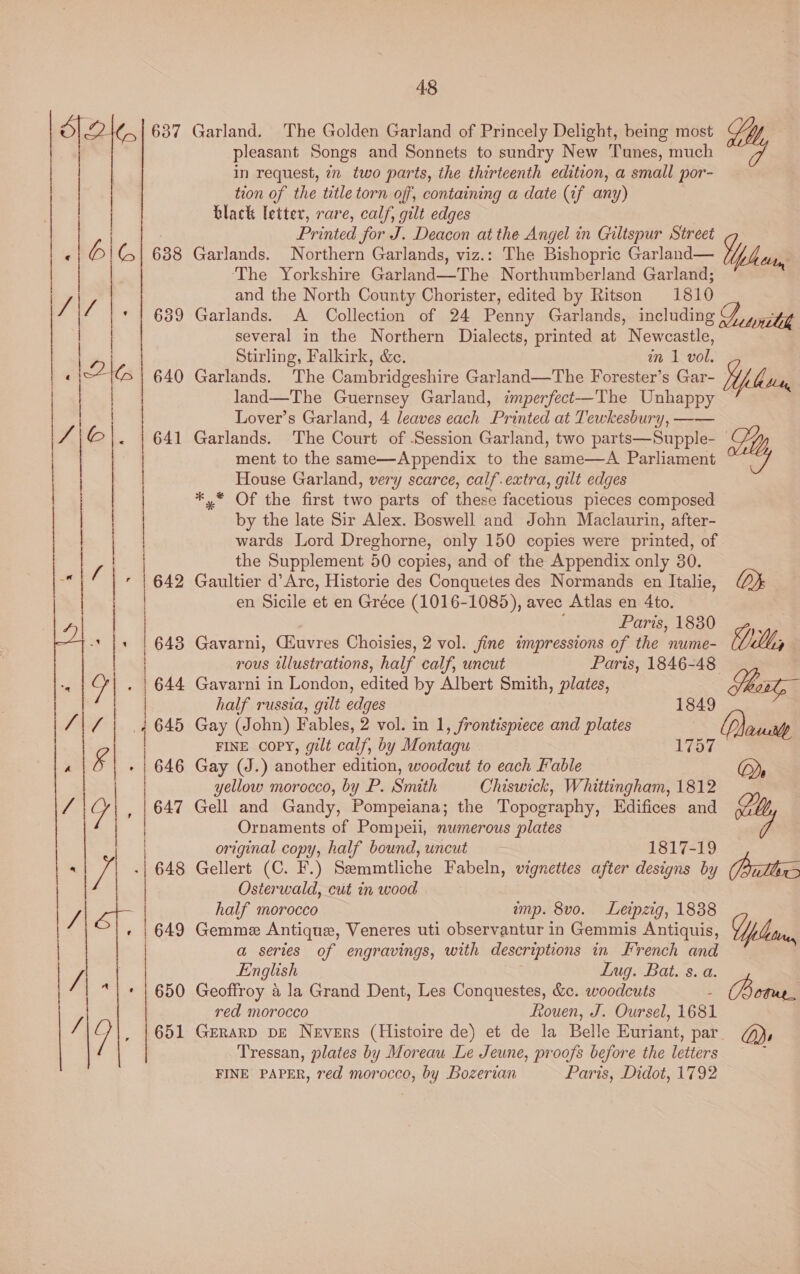 48
637 Garland. The Golden Garland of Princely Delight, being most
pleasant Songs and Sonnets to sundry New Tunes, much
in request, in two parts, the thirteenth edition, a small por-
tion of the title torn off, containing a date (if any)
black letter, rare, calf, gilt edges
Printed for J. Deacon at the Angel in Giltspur Street
638 Garlands. Northern Garlands, viz.: The Bishopric Garland—
The Yorkshire Garland—The Northumberland Garland;
and the North County Chorister, edited by Ritson 1810
639 Garlands. A Collection of 24 Penny Garlands, including
several in the Northern Dialects, printed at Newcastle,
Stirling, Falkirk, &c. in 1 vol.
640 Garlands. The Cambridgeshire Garland—The Forester's Gar-
land—The Guernsey Garland, imperfect—The Unhappy
Lover's Garland, 4 leaves each Printed at Tewkesbury, ——
641 Garlands. The Court of Session Garland, two parts—Supple-
ment to the same—Appendix to the same—A Parliament
House Garland, very scarce, calf extra, gilt edges
*** Of the first two parts of these facetious pieces composed
by the late Sir Alex. Boswell and John Maclaurin, after-
wards Lord Dreghorne, only 150 copies were printed, of
the Supplement 50 copies, and of the Appendix only 30.
642 Gaultier d'Arc, Historie des Conquetes des Normands en Italie,
en Sicile et en Gréce (1016-1085), avec Atlas en 4to.
Paris, 1830
643 Gavarni, Œuvres Choisies, 2 vol. fine impressions of the nume-
rous illustrations, half calf, uncut Paris, 1846-48
644 Gavarni in London, edited by Albert Smith, plates,
half russia, gilt edges 1849
645 Gay (John) Fables, 2 vol. in 1, frontispiece and plates
FINE COPY, gilt calf, by Montagu 1757
646 Gay (J.) another edition, woodcut to each Fable
yellow morocco, by P. Smith Chiswick, Whittingham, 1812
647 Gell and Gandy, Pompeiana; the Topography, Edifices and
Ornaments of Pompeii, numerous plates
original copy, half bound, uncut 1817-19
648 Gellert (C. F.) Sæmmtliche Fabeln, vignettes after designs by
Osterwald, cut in wood
half morocco imp. 8vo. Leipzig, 1838
649 Gemmæ Antiquæ, Veneres uti observantur in Gemmis Antiquis,
a series of engravings, with descriptions in French and
English Lug. Bat. s. a.
650 Geoffroy à la Grand Dent, Les Conquestes, &c. woodcuts -
red morocco Rouen, J. Oursel, 1681
651 GERARD DE NEVERS (Histoire de) et de la Belle Euriant, par
Tressan, plates by Moreau Le Jeune, proofs before the letters
FINE PAPER, red morocco, by Bozerian Paris, Didot, 1792